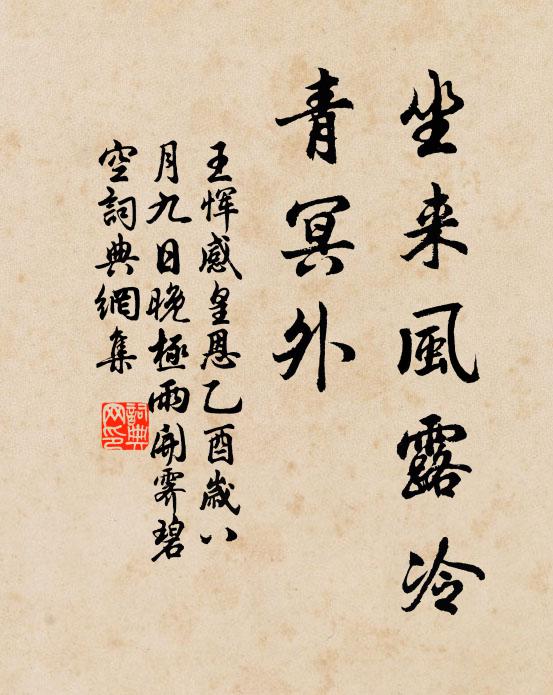 坐来風露冷
青冥外
王惲感皇恩乙酉歲八
月九日晚極雨開霽碧
空詞典網集
詞典
网印